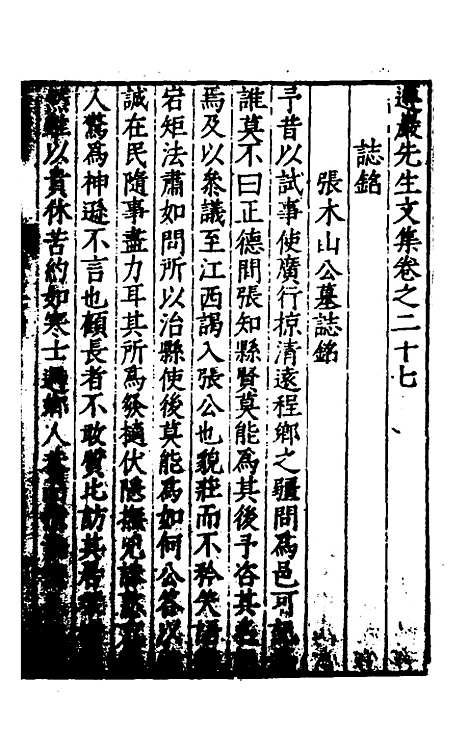 遵巖先生文集卷之二十七
誌銘
張木山公墓誌銘
予昔以試事使廣行掠清遠程鄉之疆問為邑可
誰莫不曰正德間張知縣賢莫能為其後予咨其
焉及以參議至江西謁入張公也貌莊而不矜失語
岩矩法肅如問所以治縣使後莫能為如何公答以
誠在民隨事盡力耳其所為發擿伏隱撫
人驚為神遜不言也顧長者不敢質比訪其
雖以貴休苦約如寒士遇鄉人